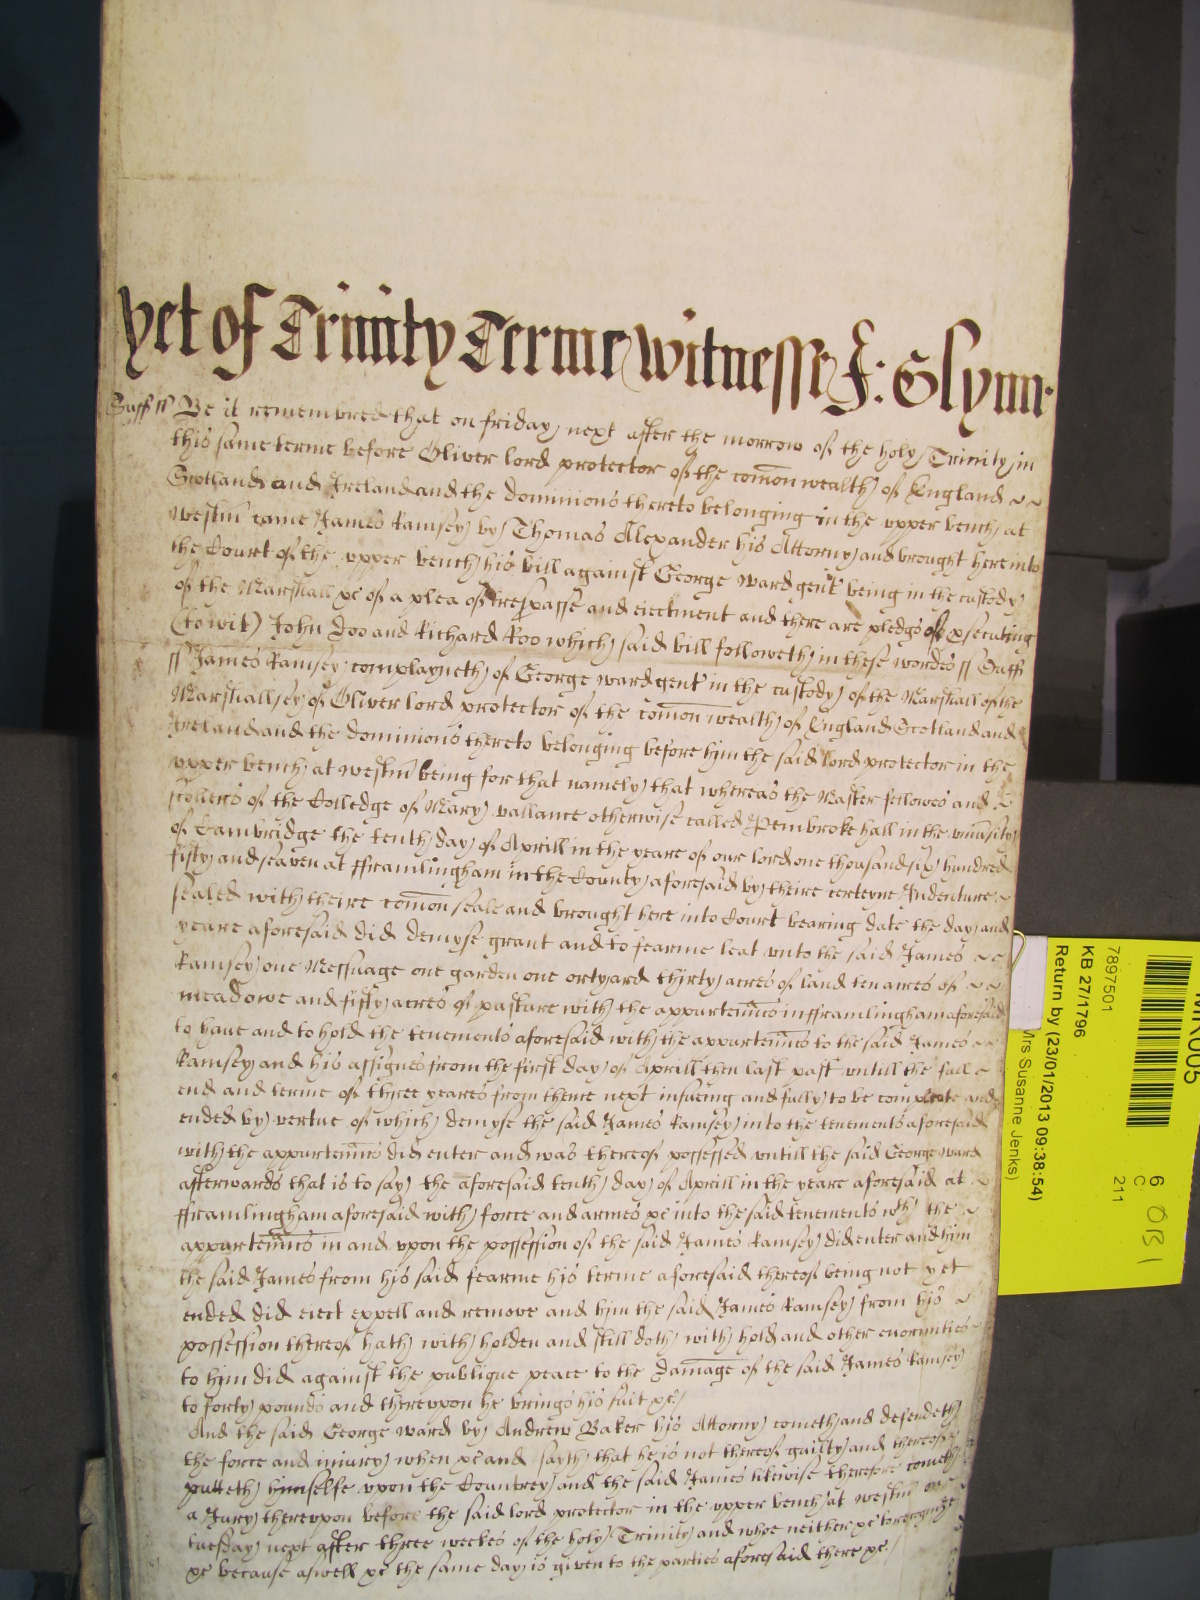 yet of Trinity Terme Witnesse J: Glynn
Suff ss Be it remembred that on friday next after the morrow of the holy Trinity in
this same terme before Oliver lord protector of the com̄onwealth of England ~ ~
Scotland and Ireland and the dominions thereto belonging in the upper bench at
westm̄ came James Ramsey by Thomas Alexander his Attorny and brought here into
the Court of the upper bench his bill against George ward gent being in the custody
of the Marshall &c of a plea of trespasse and eiectment and there are pledgs of psecuting
(to wit) John Doo and Richard Roo which said bill followeth in these wordes ss Suff
ss James Ramsey complayneth of George ward gent in the custody of the Marshall of the
Marshallsey of Oliver lord protector of the com̄on wealth of England Scotland and
Ireland and the dominions thereto belonging before him the said lord protector in the
upper bench at westm̄ being for that namely that whereas the Master fellowes and ~
scollers of the Colledge of Mary vallance otherwise called Pembroke hall in the univsity
of Cambridge the tenth day of Aprill in the yeare of our lord one thousand six hundred
fifty and seaven at fframlingham in the County aforesaid by theire certeyne Indenture ~
sealed with theire com̄on seale and brought here into Court bearing date the day and
yeare aforesaid did demyse grant and to fearme leat unto the said James ~ ~
Ramsey one Messuage one garden one ortyard thirty acres of land ten acres of ~ ~
meadowe and fifty acres of pasture with the appurten̄nc̄s in fframlingham aforesaid
to have and to hold the tenements aforesaid with the appurten̄nc̄s to the said James ~ ~
Ramsey and his assignes from the first day of Aprill then last past untill the full ~
end and terme of three yeares from thence next insueing and fully to be compleate and
ended by vertue of which demyse the said James Ramsey into the tenements aforesaid
with the appurten̄nc̄s did enter and was thereof possessed untill the said George ward
afterwards that is to say the aforesaid tenth day of Aprill in the yeare aforesaid at ~
fframlingham aforesaid with force and armes &c into the said tenements wth the ~
appurten̄nc̄s in and upon the possession of the said James Ramsey did enter and him
the said James from his said fearme his terme aforesaid thereof being not yet
ended did eiect expell and remove and him the said James Ramsey from his ~
possession thereof hath with holden and still doth with hold and other enormities
to him did against the publique peace to the damage of the said James Ramsey
to forty pounds and thereupon he brings his suit &c /
And the said George ward by Andrew Baker his Attorny cometh and defendeth
the force and iniury when &c and sayth that he is not thereof guilty and thereof
putteth himselfe upon the Countrey and the said James likewise therefore cometh
a Jury thereupon before the said lord protector in the upper bench at westm̄ on
tuesday next after three weekes of the holy Trinity and whoe neither &c to recognize
&c because aswell &c the same day is given to the parties aforesaid there &c /
MR005
7897501
KB 27/1796
Return by (23/01/2013 09:38:54)
Mrs Susanne Jenks)
6
C
211